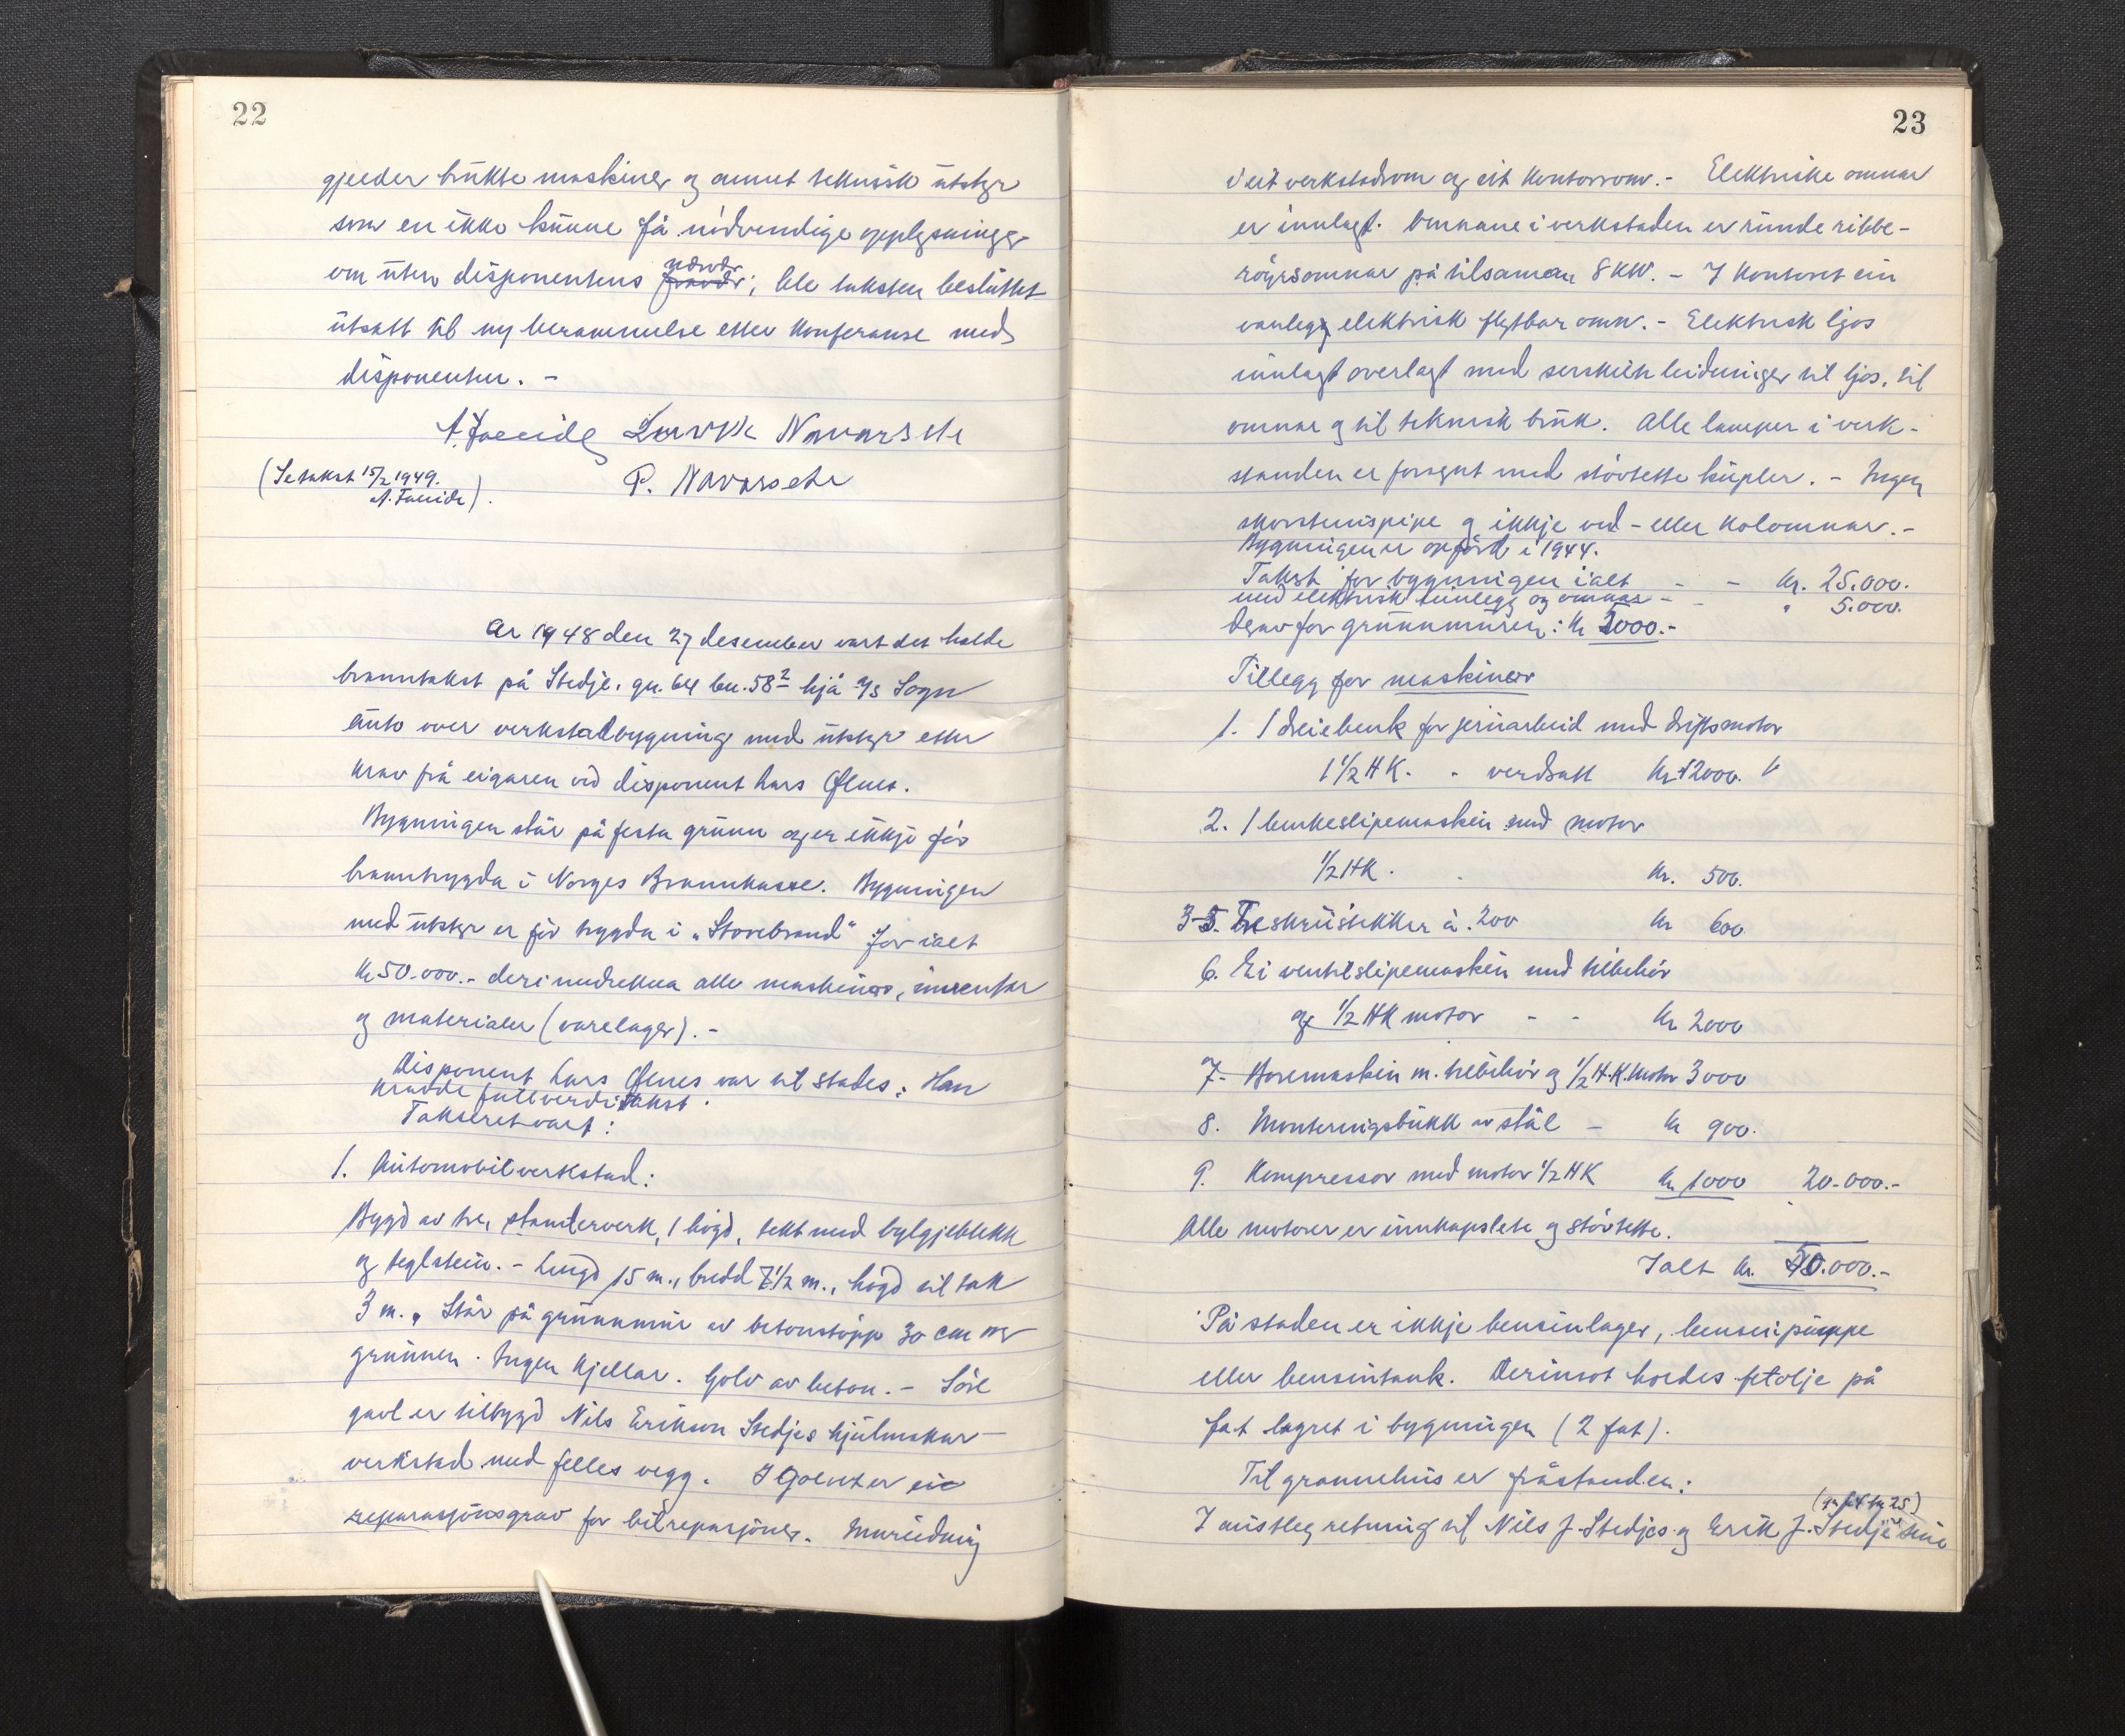 22
gjelder brukte maskiner og annet teknisk utstyr
som en ikke kunne få nødvendige opplysninger
om uten disponentens nærvær; ble taksten besluttet
utsatt til ny berammelse etter konferanse med
disponenten. -
A. Faleide Navarsete
(Se takst 15/2 1949.
A. Faleide).
P. Navarsete
År 1948 den 27 desember vart det halde
branntakst på Stedje, gn. 64 bn. 58² hjå A/S Sogn
Auto over verkstadbygning med utstyr etter
krav frå eigaren ved disponent Lars Ølnes.
Bygningen står på festa grunn og er ikkje før
branntrygda i Norges Brannkasse. Bygningen
med utstyr er før trygda i "Storebrand" for ialt
kr 50.000.- deri medrekna alle maskiner, inventar
og materialer (varelager). -
Disponent Lars Ølnes var til stades: Han
kravde fullverditakst.
Takseret vart:
1. Automobilverkstad:
Bygd av tre, stenderverk, 1 høgd, tekt med bylgjeblekk
og teglstein. - Lengd 15 m., bredd 7 1/2 m., høgd til tak
3 m., Står på grunnmur av betonstøpp 30 cm over
grunnen. Ingen kjellar. Golv av beton. - Søre
gavl er tilbygd Nils Erikson Stedjes hjulmakar-
verkstad med felles vegg. I golvet er ein
reparasjonsgrav for bilreparasjoner. Innreidning
23
i eit verkstadrom og eit kontorrom. - Elektriske omnar
er innlagt. Omnane i verkstaden er runde ribbe-
røyrsomnar på tilsaman 8 KW. - I kontoret ein
vanlegg elektrisk flytbar omn. - Elektrisk ljos
innlagt overlagt med serskilte leidninger til ljos, til
omnar og til teknisk bruk. Alle lamper i verk-
staden er forsynt med støvtette kupler. - Ingen
skorsteinspipe og ikkje ved- eller kolomnar. -
Bygningen er oppført i 1944.
Takst for bygningen ialt - - kr. 25.000.
med elektrisk innlegg og omnar - - " 5.000.
Derav for grunnmuren: kr 2000.-
Tillegg for maskiner
1. 1 dreiebenk for jernarbeid med driftsmotor
1 1/2 HK. - verdsatt kr 12000.
2. 1 benkeslipemaskin med motor
1/2 HK. - kr. 500.
3-5. Tre skrustikker à 200 kr 600
6. Ei ventilslipemaskin med tilbehør
og 1/2 HK motor - - kr 2000
7. Boremaskin m. tilbehør og 1/2 H.K. motor 3000
8. Monteringsbukk av stål - kr 900.
9. Kompressor med motor 1/2 HK kr 1000 20.000.-
Alle motorer er innkapslete og støvtette.
Ialt kr. 50.000.-
På staden er ikkje bensinlager, bensinpumpe
eller bensintank. Derimot holdes fetolje på
fat lagret i bygningen (2 fat).
Til grannehus er fråstanden:
(gn 64 bn 25)
I austleg retning til Nils J. Stedjes og Erik J. Stedje sine